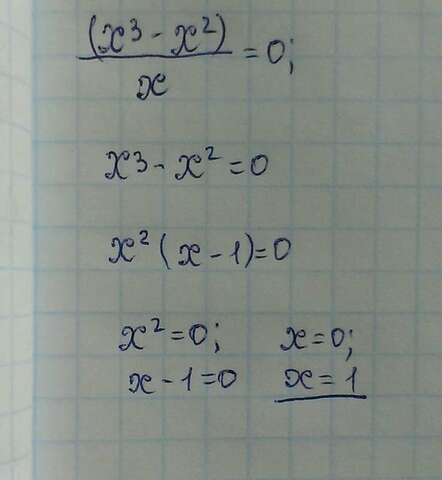 (x³ - x²)/x = 0;
x³ - x² = 0
x² (x - 1) = 0
x² = 0; x = 0;
x - 1 = 0 x = 1